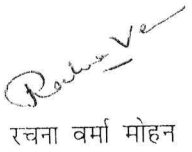 रचना वर्मा मोहन